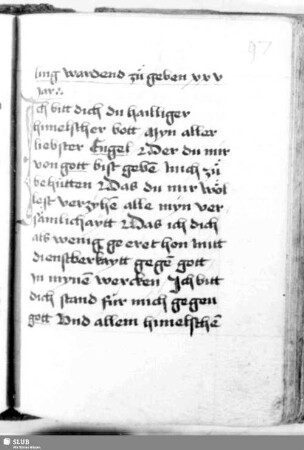 97
ling wardend zů geben xxv
jar.
Ich bitt dich du hailliger
himelscher bott Myn aller
liebster Engel Der du mir
von gott bist gebē mich zů
behütten Das du mir wöl
lest verzyhen alle myn ver
sāmlichaytt Das ich dich
als wenig ge eret hon mitt
dienstberkaytt gegē gott
in mynē wercken Ich bitt
dich stand für mich gegen
gott Vnd allem himelschē
SLUB